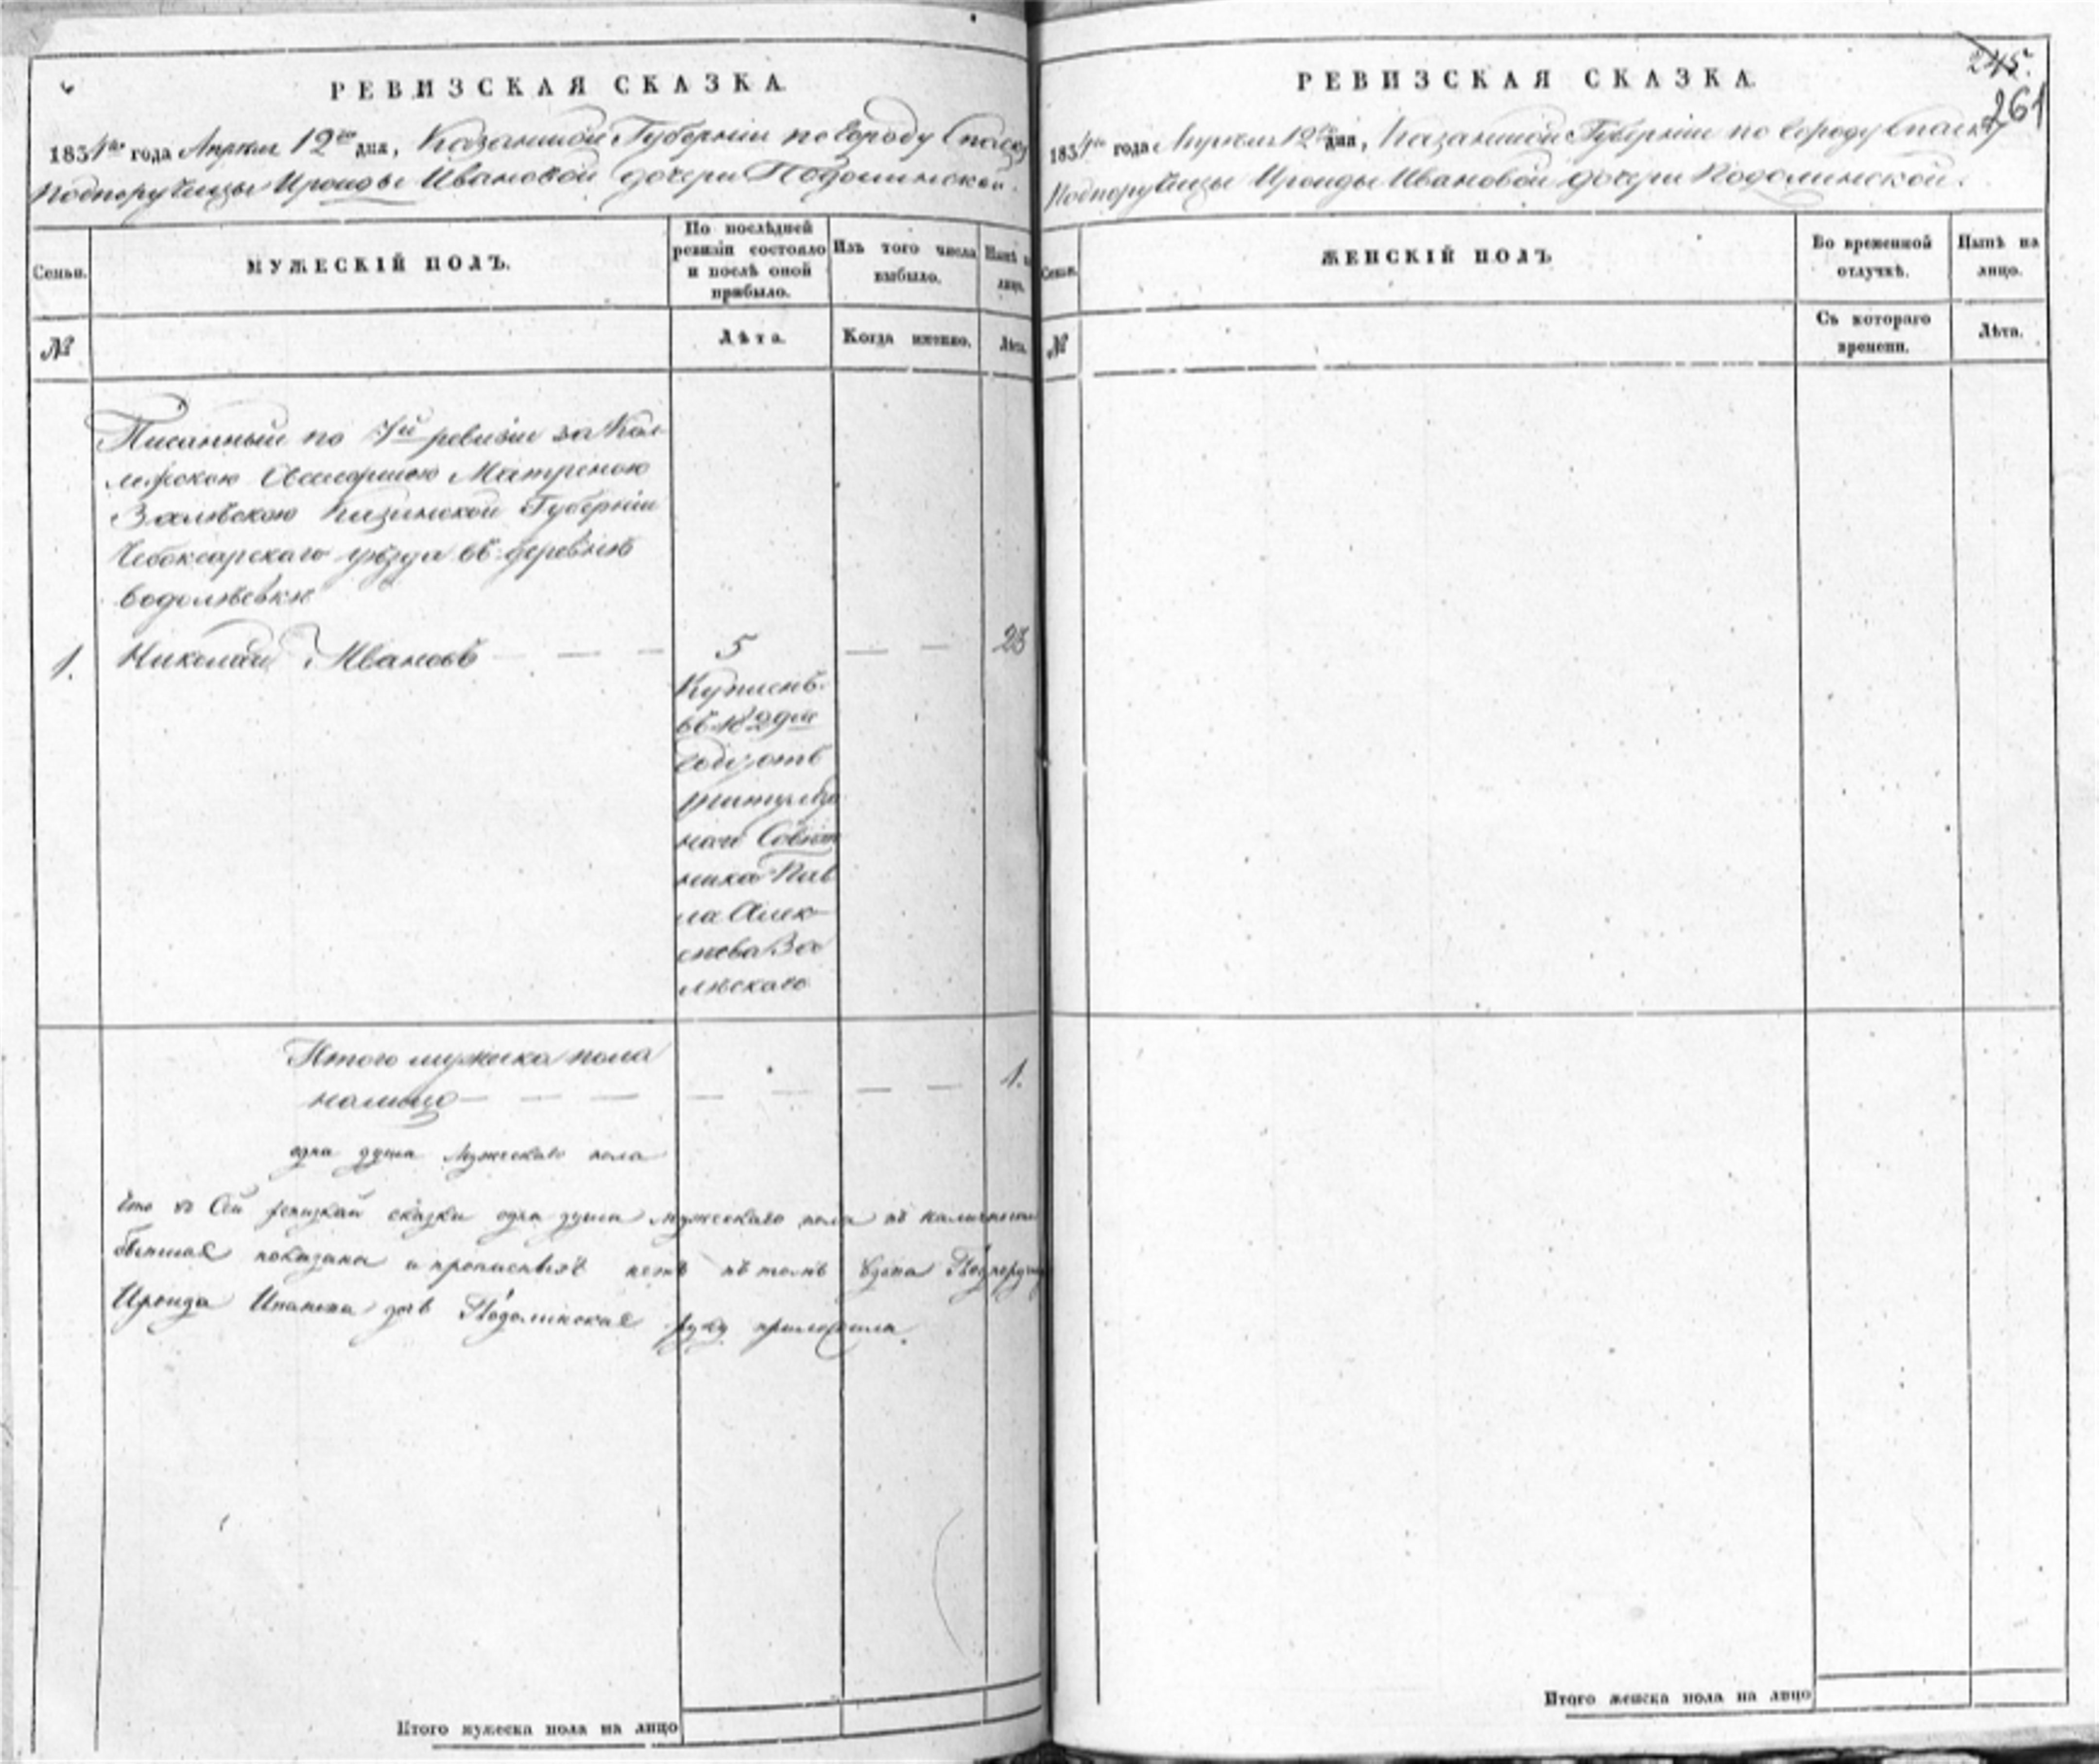 РЕВИЗСКАЯ СКАЗКА
1834го года Апреля 12го дня, Казанской Губернiи по Городу Спаску
Подпорутчицы Ироиды Ивановой дочери Подолинской.
Семьи.
МУЖЕСКIЙ ПОЛЪ.
По послѣдней ревизiи состояло и послѣ оной прибыло.
Изъ того числа выбыло.
Нынѣ на лицо.
№
Лѣта.
Когда именно.
Лѣта.
Писанный по 7й ревизiи за Кол-
лежскою Ассесоршею Матреною
Залѣскою Казанской Губернiи
Чебоксарскаго уѣзда въ деревнѣ
1. Николай Ивановъ — — — 5 — — 23
Купленъ
въ 1829м
Году отъ
титуляр
наго Совѣт
ника Пав
ла Алек
сѣева За
лѣскаго
Итого мужеска пола
налицо — — — — — — — 1.
одна душа мужескаго пола
что в Сей ревизкай сказки одна душа мужескаго пола въ наличности
бывшая показана и прописныхъ нетъ въ томъ вдова Подпорутчица
Ироида Иванова дочь Подолинская руку приложила.
Итого мужеска пола на лицо
245.
261
РЕВИЗСКАЯ СКАЗКА.
1834го года Апреля 12го дня, Казанской Губернiи по Городу Спаску
Подпорутчицы Ироиды Ивановой дочери Подолинской.
Семьи.
ЖЕНСКIЙ ПОЛЪ
Во временной отлучкѣ.
Нынѣ на лицо.
№
Съ котораго времени.
Лѣта.
Итого женска пола на лицо